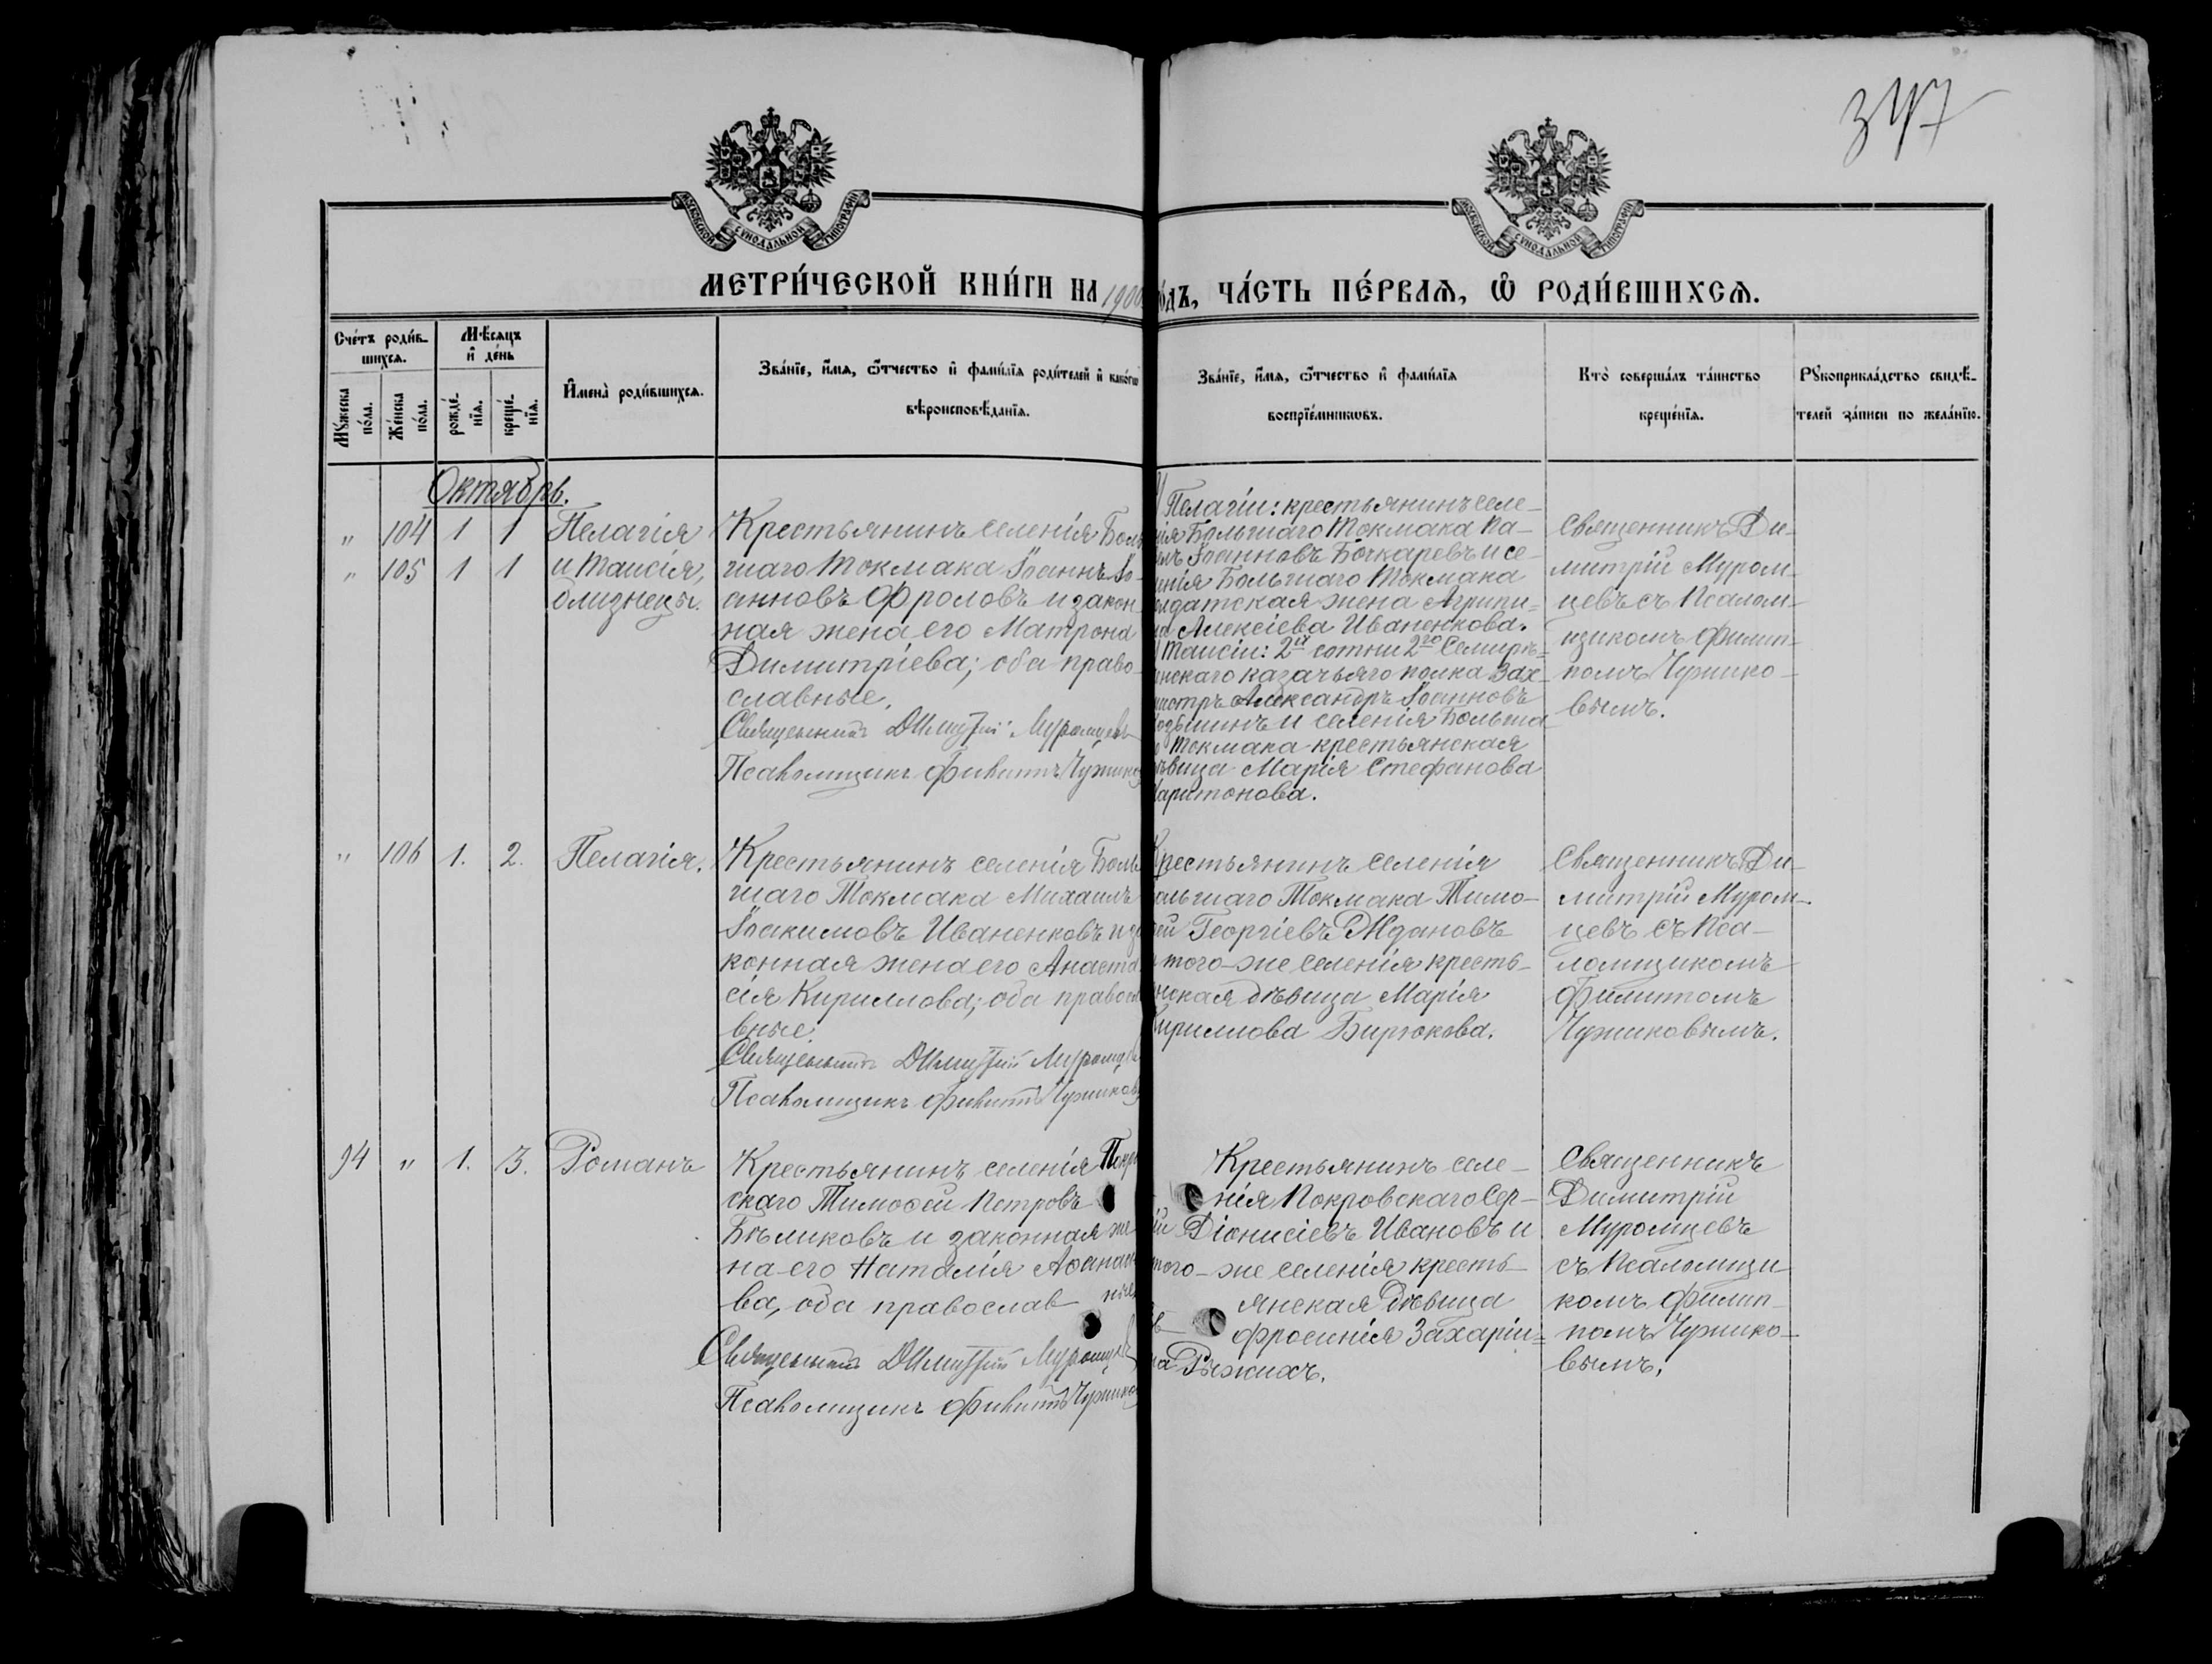 347
МОСКОВСКОЙ СУНОДАЛЬНОЙ ТИПОГРАФІИ
МОСКОВСКОЙ СУНОДАЛЬНОЙ ТИПОГРАФІИ
МЕТРИ́ЧЕСКОЙ КНИ́ГИ НА 1900 о́дъ, ЧА́СТЬ ПЕ́РВАѦ, Ѡ҆ РОДИ́ВШИХСѦ.
Сче́тъ роди́в-
шихсѧ.
Мꙋ́жеска
по́ла.
Же́нска
по́ла.
Мѣ́сѧцъ
и҆ де́нь
рожде́-
нїѧ.
креще́-
нїѧ.
И҆мена̀ роди́вшихсѧ.
Зва́нїе, и҆́мѧ, ѻ҆́тчество и҆ фами́лїѧ роди́телей и҆ како́гѡ
вѣроисповѣ́данїѧ.
Зва́нїе, и҆́мѧ, ѻ҆́тчество и҆ фами́лїѧ
воспрїе́мникѡвъ.
Кто̀ соверша́лъ та́инство
креще́нїѧ.
Рꙋкоприкла́дство свидѣ́-
телей за́писи по жела́нїю.
Октябрь.
" 104 1 1 Пелагія
" 105 1 1 и Таисія,
близнецы.
Крестьянинъ селенія Боль
шаго Токмака Іоаннъ Іо-
анновъ Фроловъ и закон-
ная жена его Матрона
Димитріева; оба право-
славные.
Священникъ Димитрій Муромцевъ
Псаломщикъ Филиппъ Чужико
Пелагіи: крестьянинъ селе-
нія Большаго Токмака Па-
елъ Іоанновъ Бочкаревъ и се-
енія Большаго Токмака
олдатская жена Агрипи-
на Алексіева Иваненкова.
Таисіи: 2й сотни 2го Семирѣ-
инскаго казачьяго полка Вах-
мистръ Александръ Іоанновъ
и селенія Больша
Токмака крестьянская
ѣвица Марія Стефанова
Харитонова.
Священникъ Ди-
митрій Муром-
цевъ съ Псалом-
щикомъ Филип-
помъ Чужико-
вымъ.
" 106 1. 2. Пелагія.
Крестьянинъ селенія Боль
шаго Токмака Михаилъ
Іоакимовъ Иваненковъ и за
конная жена его Анаста
сія Кириллова; оба правосла
вные.
Священникъ Димитрій Муромцев
Псаломщикъ Филиппъ Чужиков
Крестьянинъ селенія
ольшаго Токмака Тимо-
ѳей Георгіевъ Ждановъ
того-же селенія кресть-
нская дѣвица Марія
Кириллова Бирюкова.
Священникъ Ди-
митрій Муром-
цевъ съ Пса-
ломщикомъ
Филиппомъ
Чужиковымъ.
94 " 1. 3. Романъ
Крестьянинъ селенія Покро
скаго Тимоѳей Петровъ
Бѣликовъ и законная же
на его Наталія Аѳанась
ва, оба православ ные
Священникъ Димитрій Муромцев
Псаломщикъ Филиппъ Чужико
Крестьянинъ селе-
нія Покровскаго Сер-
ій Діонисіевъ Ивановъ и
того-же селенія кресть-
янская дѣвица
Фросинія Захаріи-
на Рыжихъ.
Священникъ
Димитрій
Муромцевъ
съ Псаломщи
комъ Филип-
помъ Чужико-
вымъ.